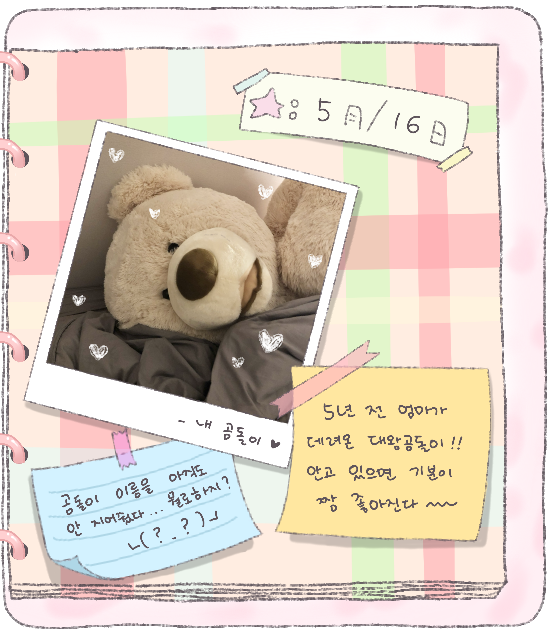 ☆ : 5月/16日
- 내 곰돌이 ♥
5년 전 엄마가
데려온 대왕곰돌이!!
안고 있으면 기분이
짱 좋아진다 ~~
곰돌이 이름을 아직도
안 지어줬다... 뭘로하지?
ㄴ(?_?)ㄱ